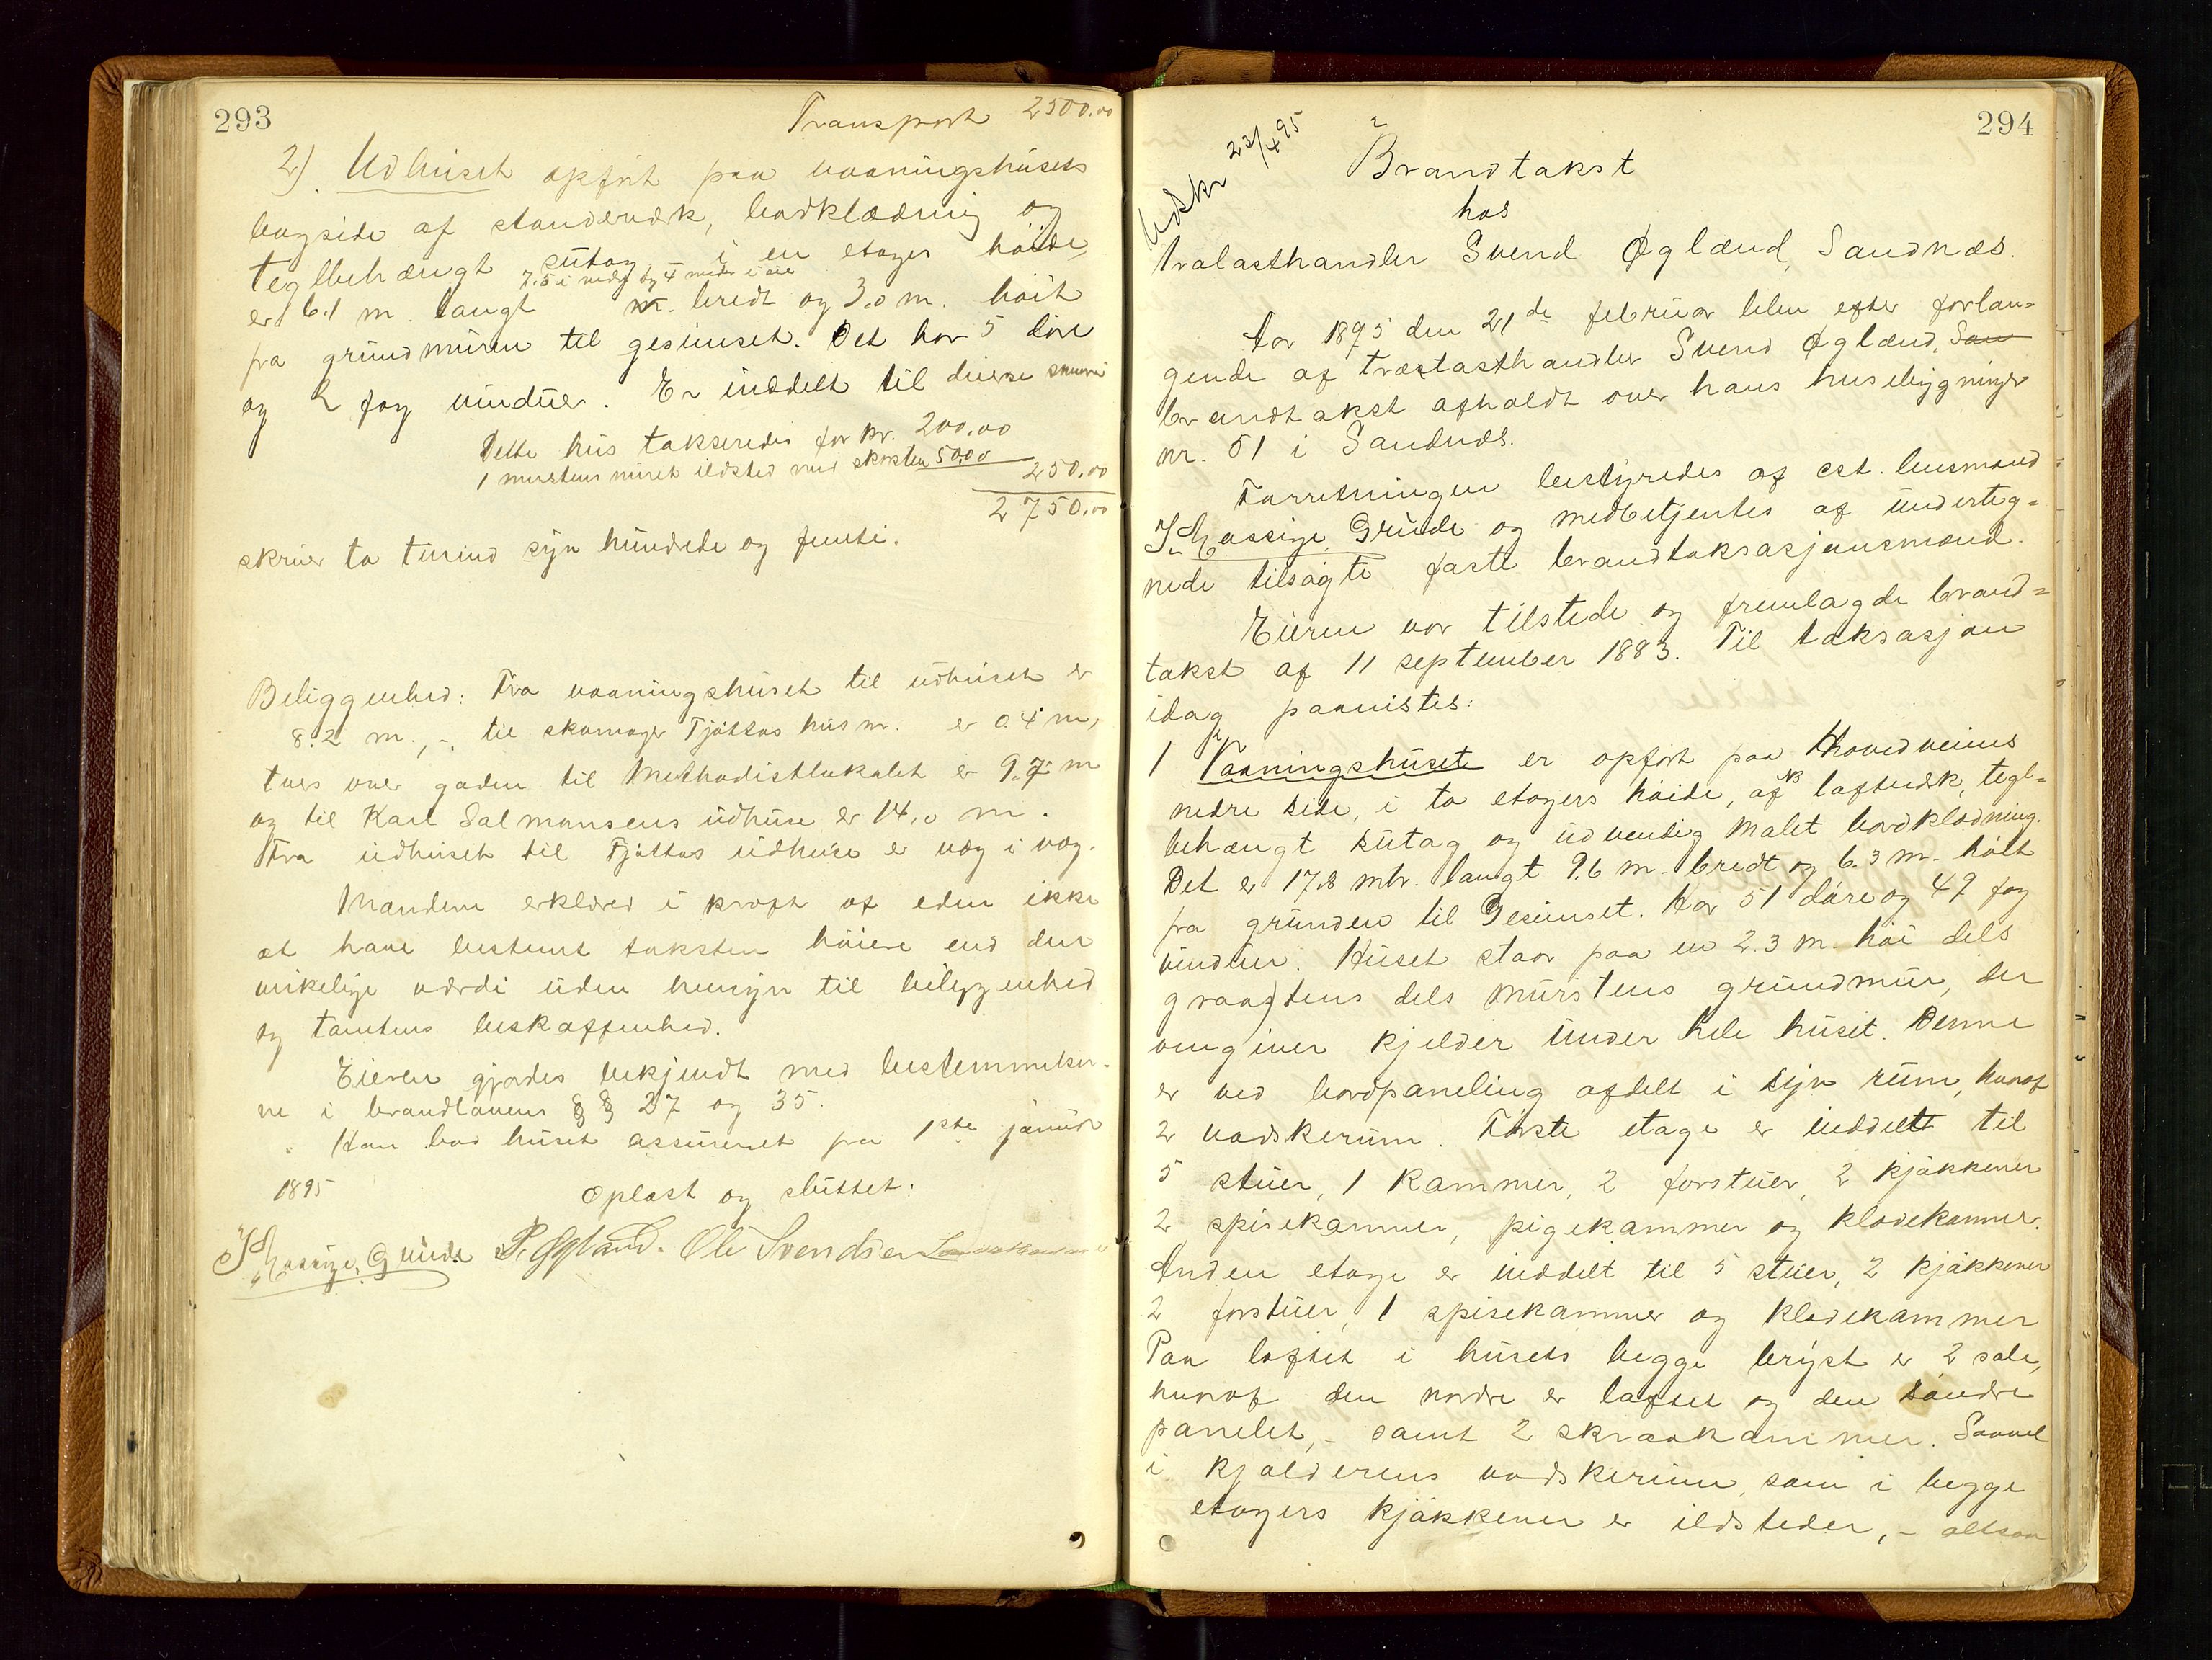 293
Transport 2500.00
2) Udhuset opført paa vaaningshusets
bagside af standerværk, bordklædning og
teglbehængt sutag, i en etages høide,
7.5 i nedre og 4 meter i øvre
er 6.1 m. langt m. bredt og 3.0 m. høit
fra grundmuren til gesimset. Det har 5 døre
og 2 fag vinduer. Er inddelt til diverse
Dette hus takseredes for kr. 200.00
1 murstens muret ildsted med skorsten 50.00
250.00
2750.00
skriver to tusind syv hundrede og femti.
Beliggenhed: Fra vaaningshuset til udhuset er
8.2 m., - til skomager Tjøttas hus nr. er 0.4 m,
tvers over gaden til Methodistlokalet er 9.7 m
og til Karl Salmonsens udhuse er 14.0 m.
Fra udhuset til Tjøttas udhuse er væg i væg.
Mændene erklæred i kraft af eden ikke
at have bestemt taksten høiere end den
virkelige værdi uden hensyn til beliggenhed
og tomtens beskaffenhed.
Eieren gjordes bekjendt med bestemmelser-
ne i brandlovens §§ 27 og 35.
Han bad huset assureret fra 1ste januar
1895
Oplæst og sluttet:
Gude P. Eggland. Ole Svendsen
294
Udskr 23/4 95
Brandtakst
hos
Trælasthandler Svend Øglænd, Sandnæs.
Aar 1895 den 21de februar blev efter forlan=
gende af trælasthandler Svend Øglænd, San
brandtakst afholdt over hans husebygninger
nr. 51 i Sandnæs.
Forretningen bestyredes af cst. lensmand
Gude og medbetjentes af underteg=
nede tilsagte faste brandtaksasjonsmænd.
Eieren var tilstede og fremlagde brand=
takst af 11 september 1883. Til taksasjon
idag paavistes:
1 Vaaningshuset er opført paa Hovedveiens
nedre side, i to etagers høide, af NB laftverk, tegl=
behængt sutag og udvendig malet bordklædning.
Det er 17.8 mtr. langt 9.6 m. bredt og 6.3 m. høit
fra grunden til Gesimset. Har 51 døre og 49 fag
vinduer. Huset staar paa en 2.3 m. høi dels
graastens dels murstens grundmur, der
omgiver kjelder under hele huset. Denne
er ved bordpaneling afdelt i syv rum, hvoraf
2 vadskerum. Første etage er inddelt til
5 stuer, 1 kammer, 2 forstuer, 2 kjøkkener
2 spisekammer, pigekammer og klædekammer.
Anden etage er inddelt til 5 stuer, 2 kjøkkener
2 forstuer, 1 spisekammer og klædekammer
Paa loftet i husets begge bryst er 2 sale,
hvoraf den nordre er laftet og den søndre
panelet, - samt 2 skraakammer. Saavel
i kjælderens vadskerum, som i begge
etagers kjøkkener er ildsteder, - altsaa